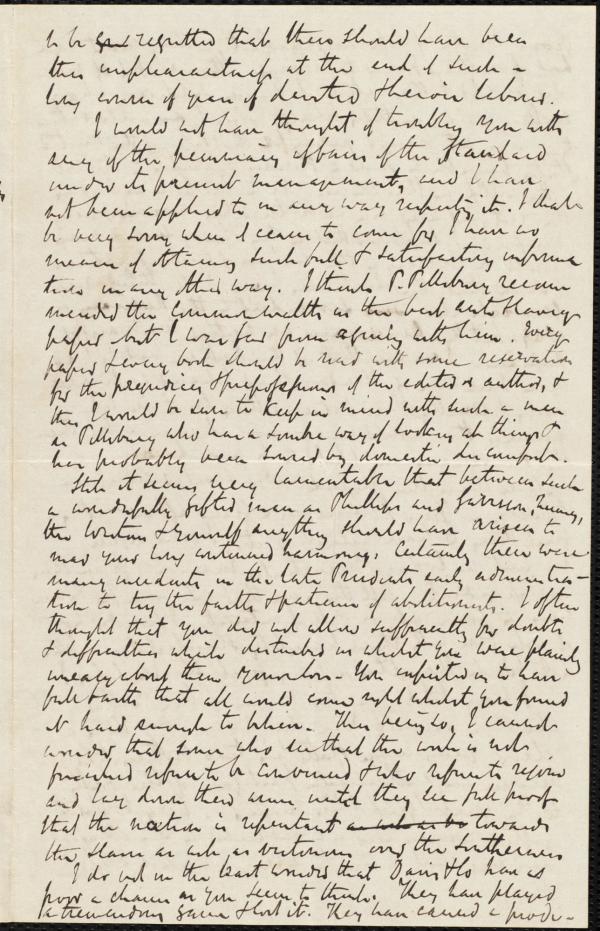 to be regretted that there should have been
this unpleasantness at the end of such a
long course of years of devoted & heroic labour.
I would not have thought of troubling you with
any of the pecuniary affairs of the Standard
under its present management, and I have
not been applied to in any way respecting it. I shall
be very sorry when it ceases to come for I have no
means of obtaining such full & satisfactory informa
tion in any other way. I think P. Pillsbury recom
mended the Commonwealth as the best anti slavery
paper but I was far from agreeing with him. Every
paper & every book should be read with some reservation
for the prejudices & prepossessions of the editor or author, &
this I would be sure to keep in mind with such a man
as Pillsbury who has a sombre way of looking at things &
has probably been soured by domestic discomfort.
Still it seems very lamentable that between such
a wonderfully gifted man as Phillips and Garrison, Quincy,
the Westons & yourself anything should have arisen to
mar your long continued harmony. Certainly there were
many incidents in the late Presidents early administra-
tion to try the faith & patience of abolitionists. I often
thought that you did not allow sufficiently for doubts
& difficulties which disturbed us whilst you were plainly
uneasy about them yourselves - You expected us to have
full faith that all would come right whilst you found
it hard enough to believe. This being so, I cannot
wonder that some who see that the work is not
finished refuse to be convinced & who refuse to rejoice
and lay down their arms until they see full proof
that the nation is repentant towards
the slave as well as victorious over the Southerners
I do not in the least wonder that Davis & Co have as
poor a chance as you seem to think. They have played
a tremendous game & lost it. They have caused a prodi-